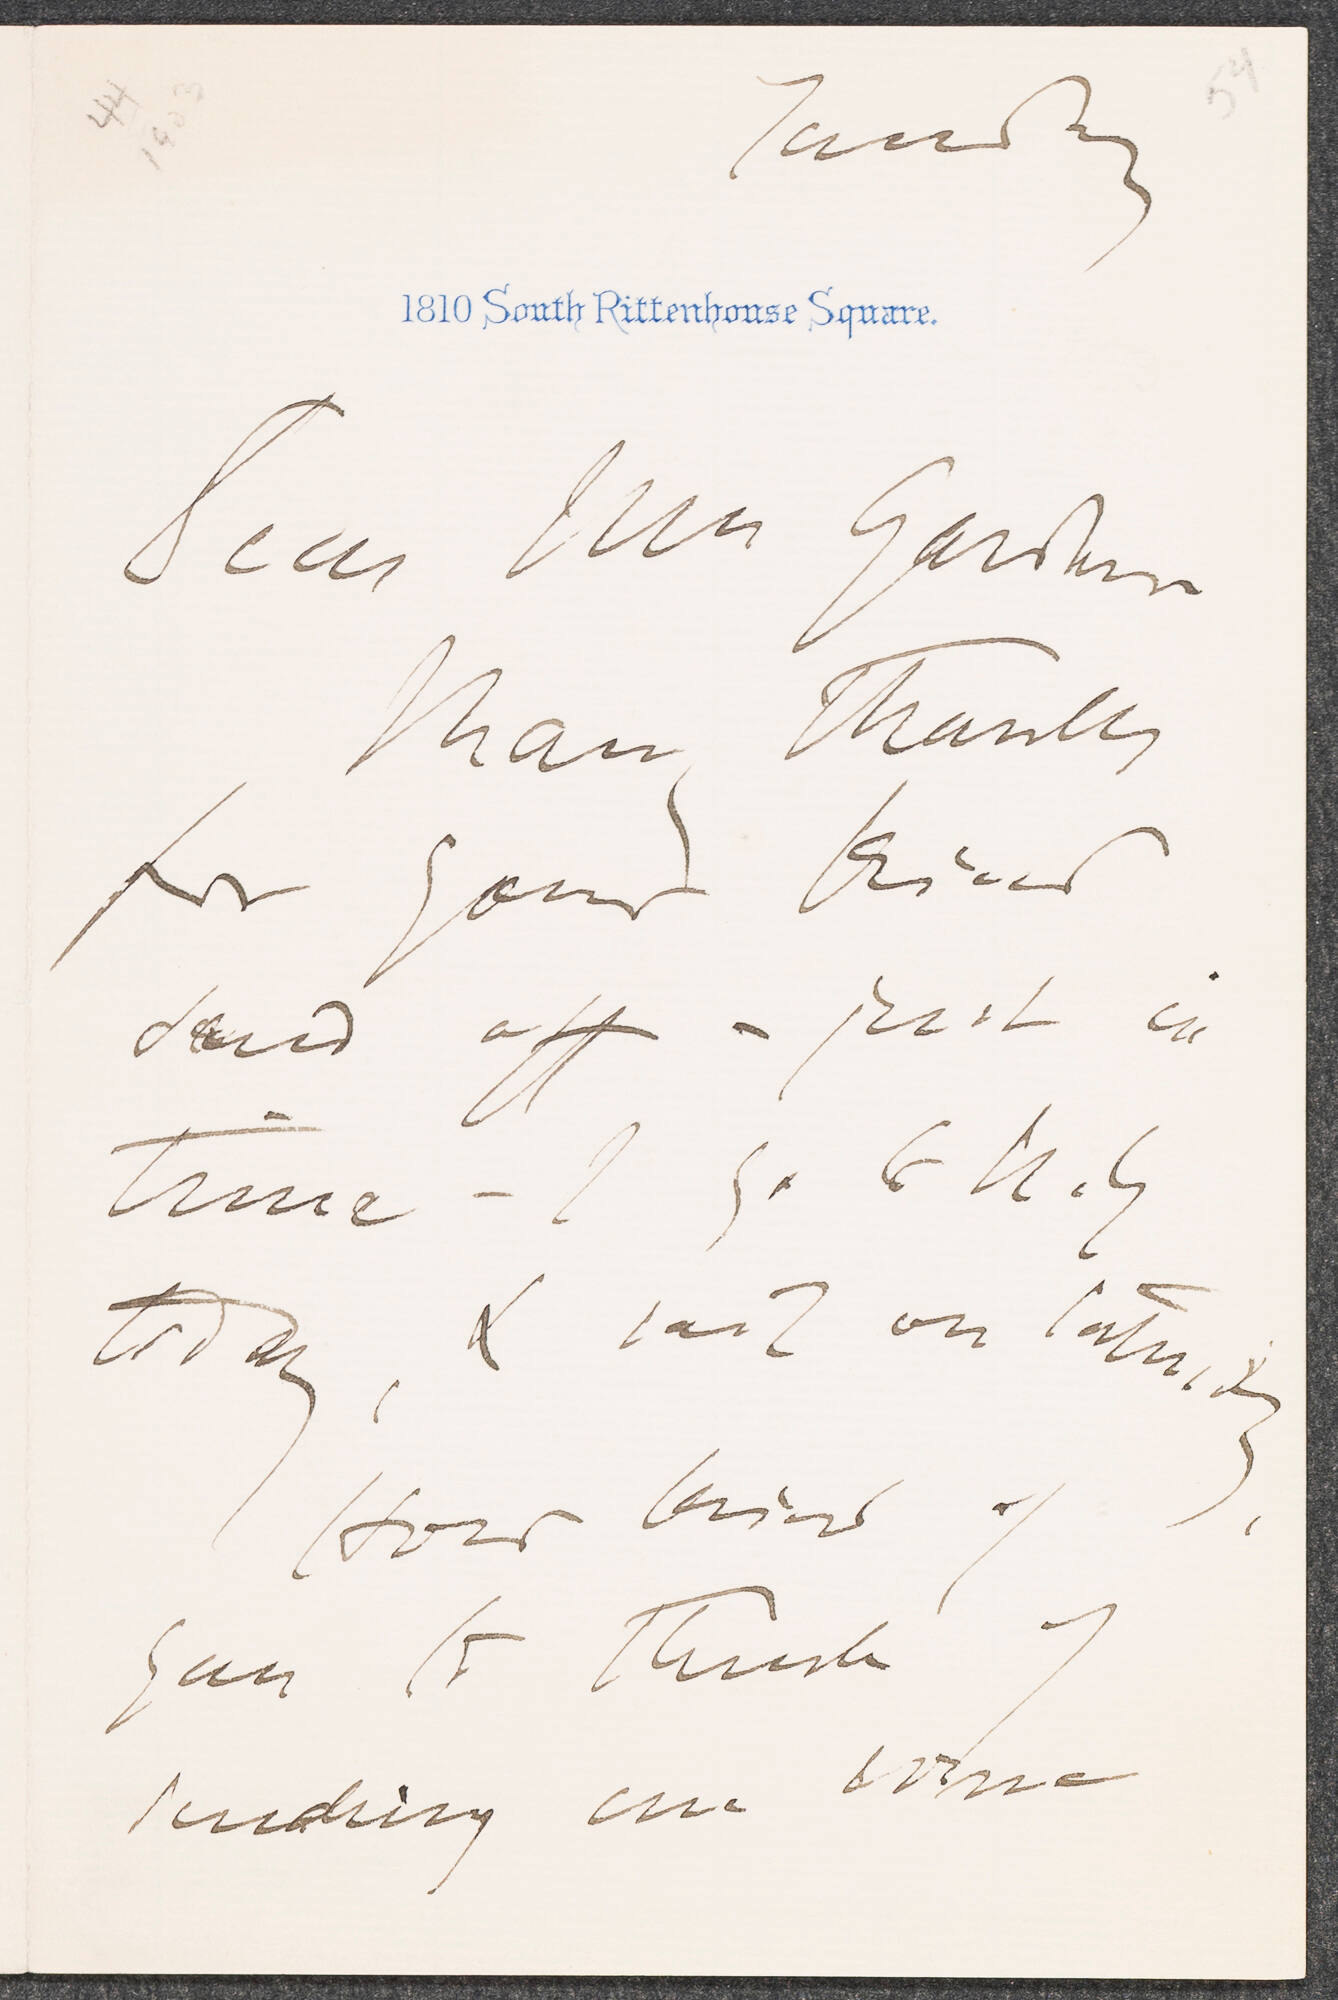 44
1903
54
Tuesday
1810 South Rittenhouse Square.
Dear Mrs Gardner
Many Thanks
for your kind
send off - just in
time - I go to N.Y
today, & sail on Saturday,
How kind of
you to think of
sending me some